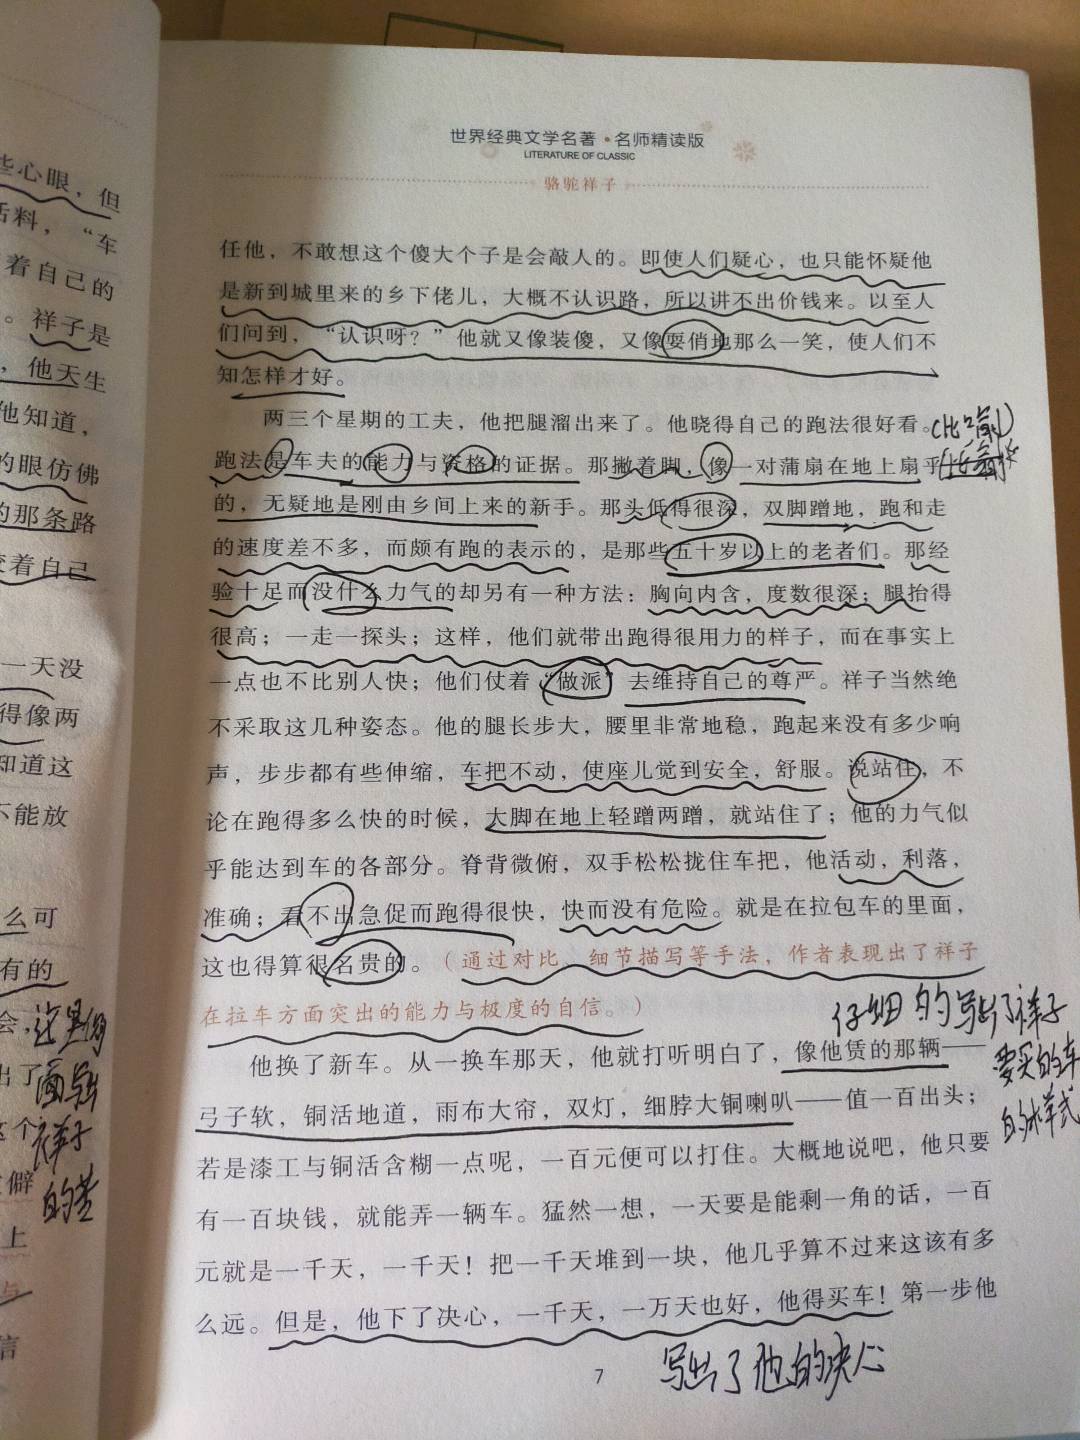 些心眼，但
活料，“车
着自己的
。祥子是
，他天生
他知道，
的眼仿佛
的那条路
着自己
一天没
得像两
知道这
不能放
么可
有的
会，
出了
这个
僻
上
与
信
这里侧
面写出
祥子
的苦
世界经典文学名著·名师精读版
LITERATURE OF CLASSIC
骆驼祥子
任他，不敢想这个傻大个子是会敲人的。即使人们疑心，也只能怀疑他
是新到城里来的乡下佬儿，大概不认识路，所以讲不出价钱来。以至人
们问到，“认识呀？”他就又像装傻，又像耍俏地那么一笑，使人们不
知怎样才好。
两三个星期的工夫，他把腿溜出来了。他晓得自己的跑法很好看。
跑法是车夫的能力与资格的证据。那撇着脚，像一对蒲扇在地上扇乎
的，无疑地是刚由乡间上来的新手。那头低得很深，双脚蹭地，跑和走
的速度差不多，而颇有跑的表示的，是那些五十岁以上的老者们。那经
验十足而没什么力气的却另有一种方法：胸向内含，度数很深；腿抬得
很高；一走一探头；这样，他们就带出跑得很用力的样子，而在事实上
一点也不比别人快；他们仗着“做派”去维持自己的尊严。祥子当然绝
不采取这几种姿态。他的腿长步大，腰里非常地稳，跑起来没有多少响
声，步步都有些伸缩，车把不动，使座儿觉到安全，舒服。说站住，不
论在跑得多么快的时候，大脚在地上轻蹭两蹭，就站住了；他的力气似
乎能达到车的各部分。脊背微俯，双手松松拢住车把，他活动，利落，
准确；看不出急促而跑得很快，快而没有危险。就是在拉包车的里面，
这也得算很名贵的。（通过对比、细节描写等手法，作者表现出了祥子
在拉车方面突出的能力与极度的自信。）
仔细的写出了祥子
要买的车
的样式
他换了新车。从一换车那天，他就打听明白了，像他赁的那辆——
弓子软，铜活地道，雨布大帘，双灯，细脖大铜喇叭——值一百出头；
若是漆工与铜活含糊一点呢，一百元便可以打住。大概地说吧，他只要
有一百块钱，就能弄一辆车。猛然一想，一天要是能剩一角的话，一百
元就是一千天，一千天！把一千天堆到一块，他几乎算不过来这该有多
么远。但是，他下了决心，一千天，一万天也好，他得买车！第一步他
写出了他的决心
7